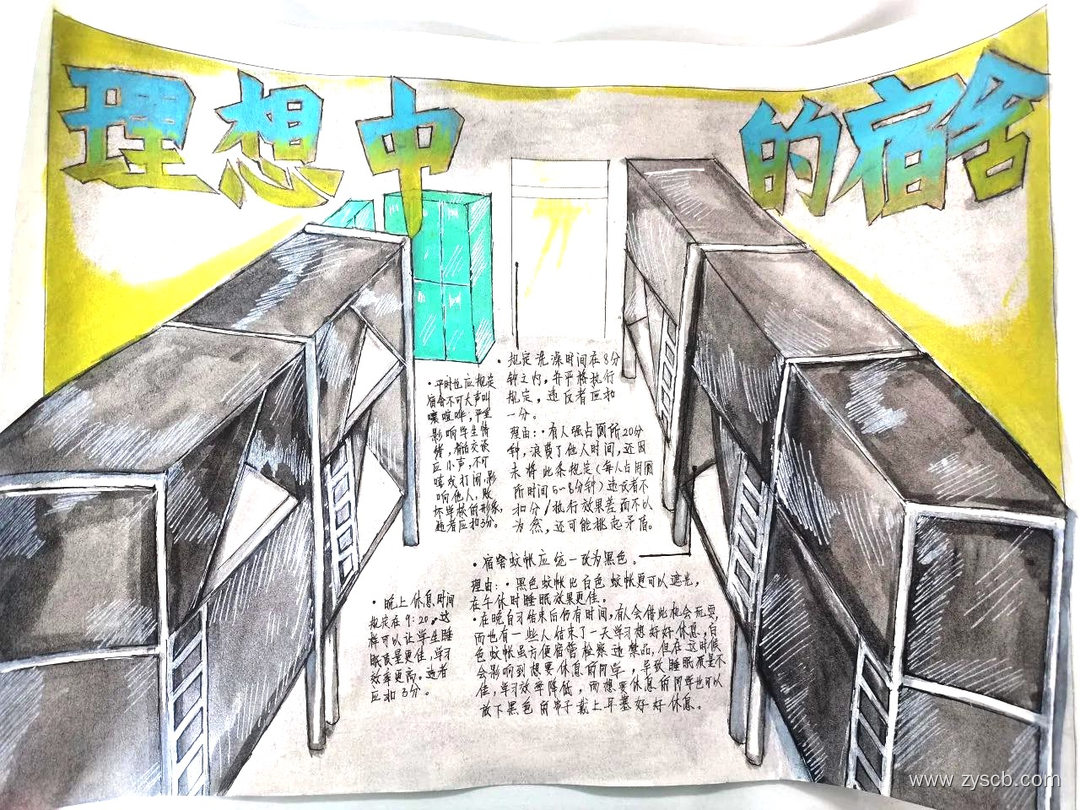 理想中的宿舍
·规定洗澡时间在8分
钟之内,并严格执行
规定,违反者应扣
一分。
理由:·有人强占厕所20分
钟,浪费了他人时间,还因
未将此条规定(每人占用厕
所时间5-8分钟)违反者不
扣分/执行效果差而不以
为然,还可能挑起矛盾。
·平时也应规定
宿舍不可大声叫
嚷喧哗,严重
影响学生情
绪,
应小声,不可
嘻戏打闹,影
响他人,败
坏学校的形象,
违者应扣3分。
·宿舍蚊帐应统一改为黑色。
理由:·黑色蚊帐比白色蚊帐更可以遮光,
在午休时睡眠效果更佳。
·在晚自习结束后仍有时间,有人会借此机会玩耍,
而也有一些人结束了一天学习想好好休息,白
色蚊帐虽方便宿管检察违禁品,但在这时候
会影响到想要休息的同学,导致睡眠质量不
佳,学习效率降低,而想要休息的同学也可以
放下黑色的帘子戴上耳塞好好休息。
·晚上休息时间
规定在9:20,这
样可以让学生睡
眠质量更佳,学习
效率更高。违者
应扣3分。
www.zyscb.com